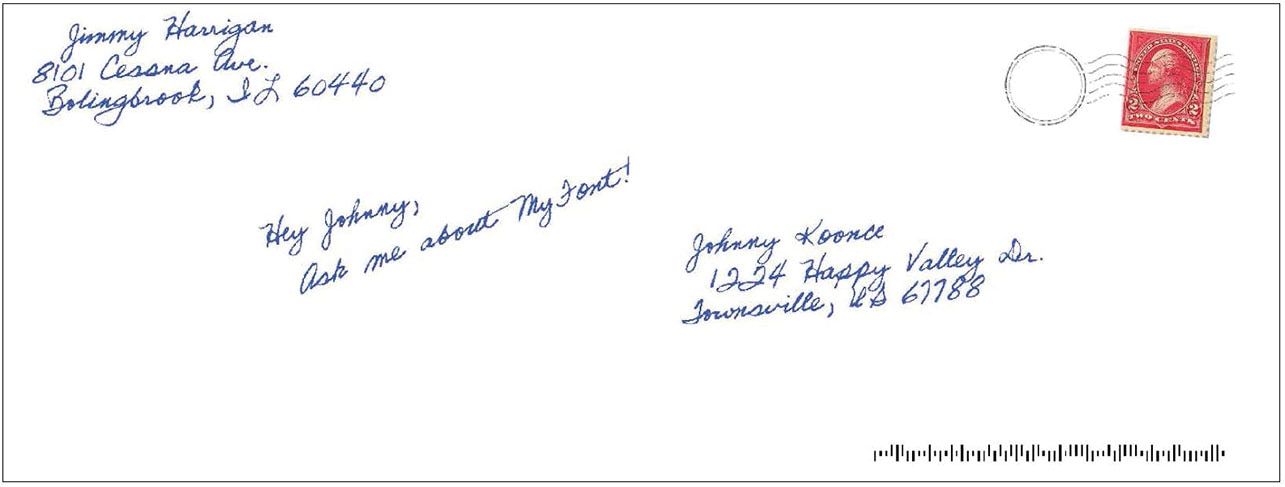 Jimmy Harrigan
8101 Cessna Ave.
Bolingbrook, IL 60440
UNITED STATES POSTAGE
2 2
TWO CENTS
Hey Johnny,
Ask me about MyFont!
Johnny Koonce
1224 Happy Valley Dr.
Townsville, US 67788